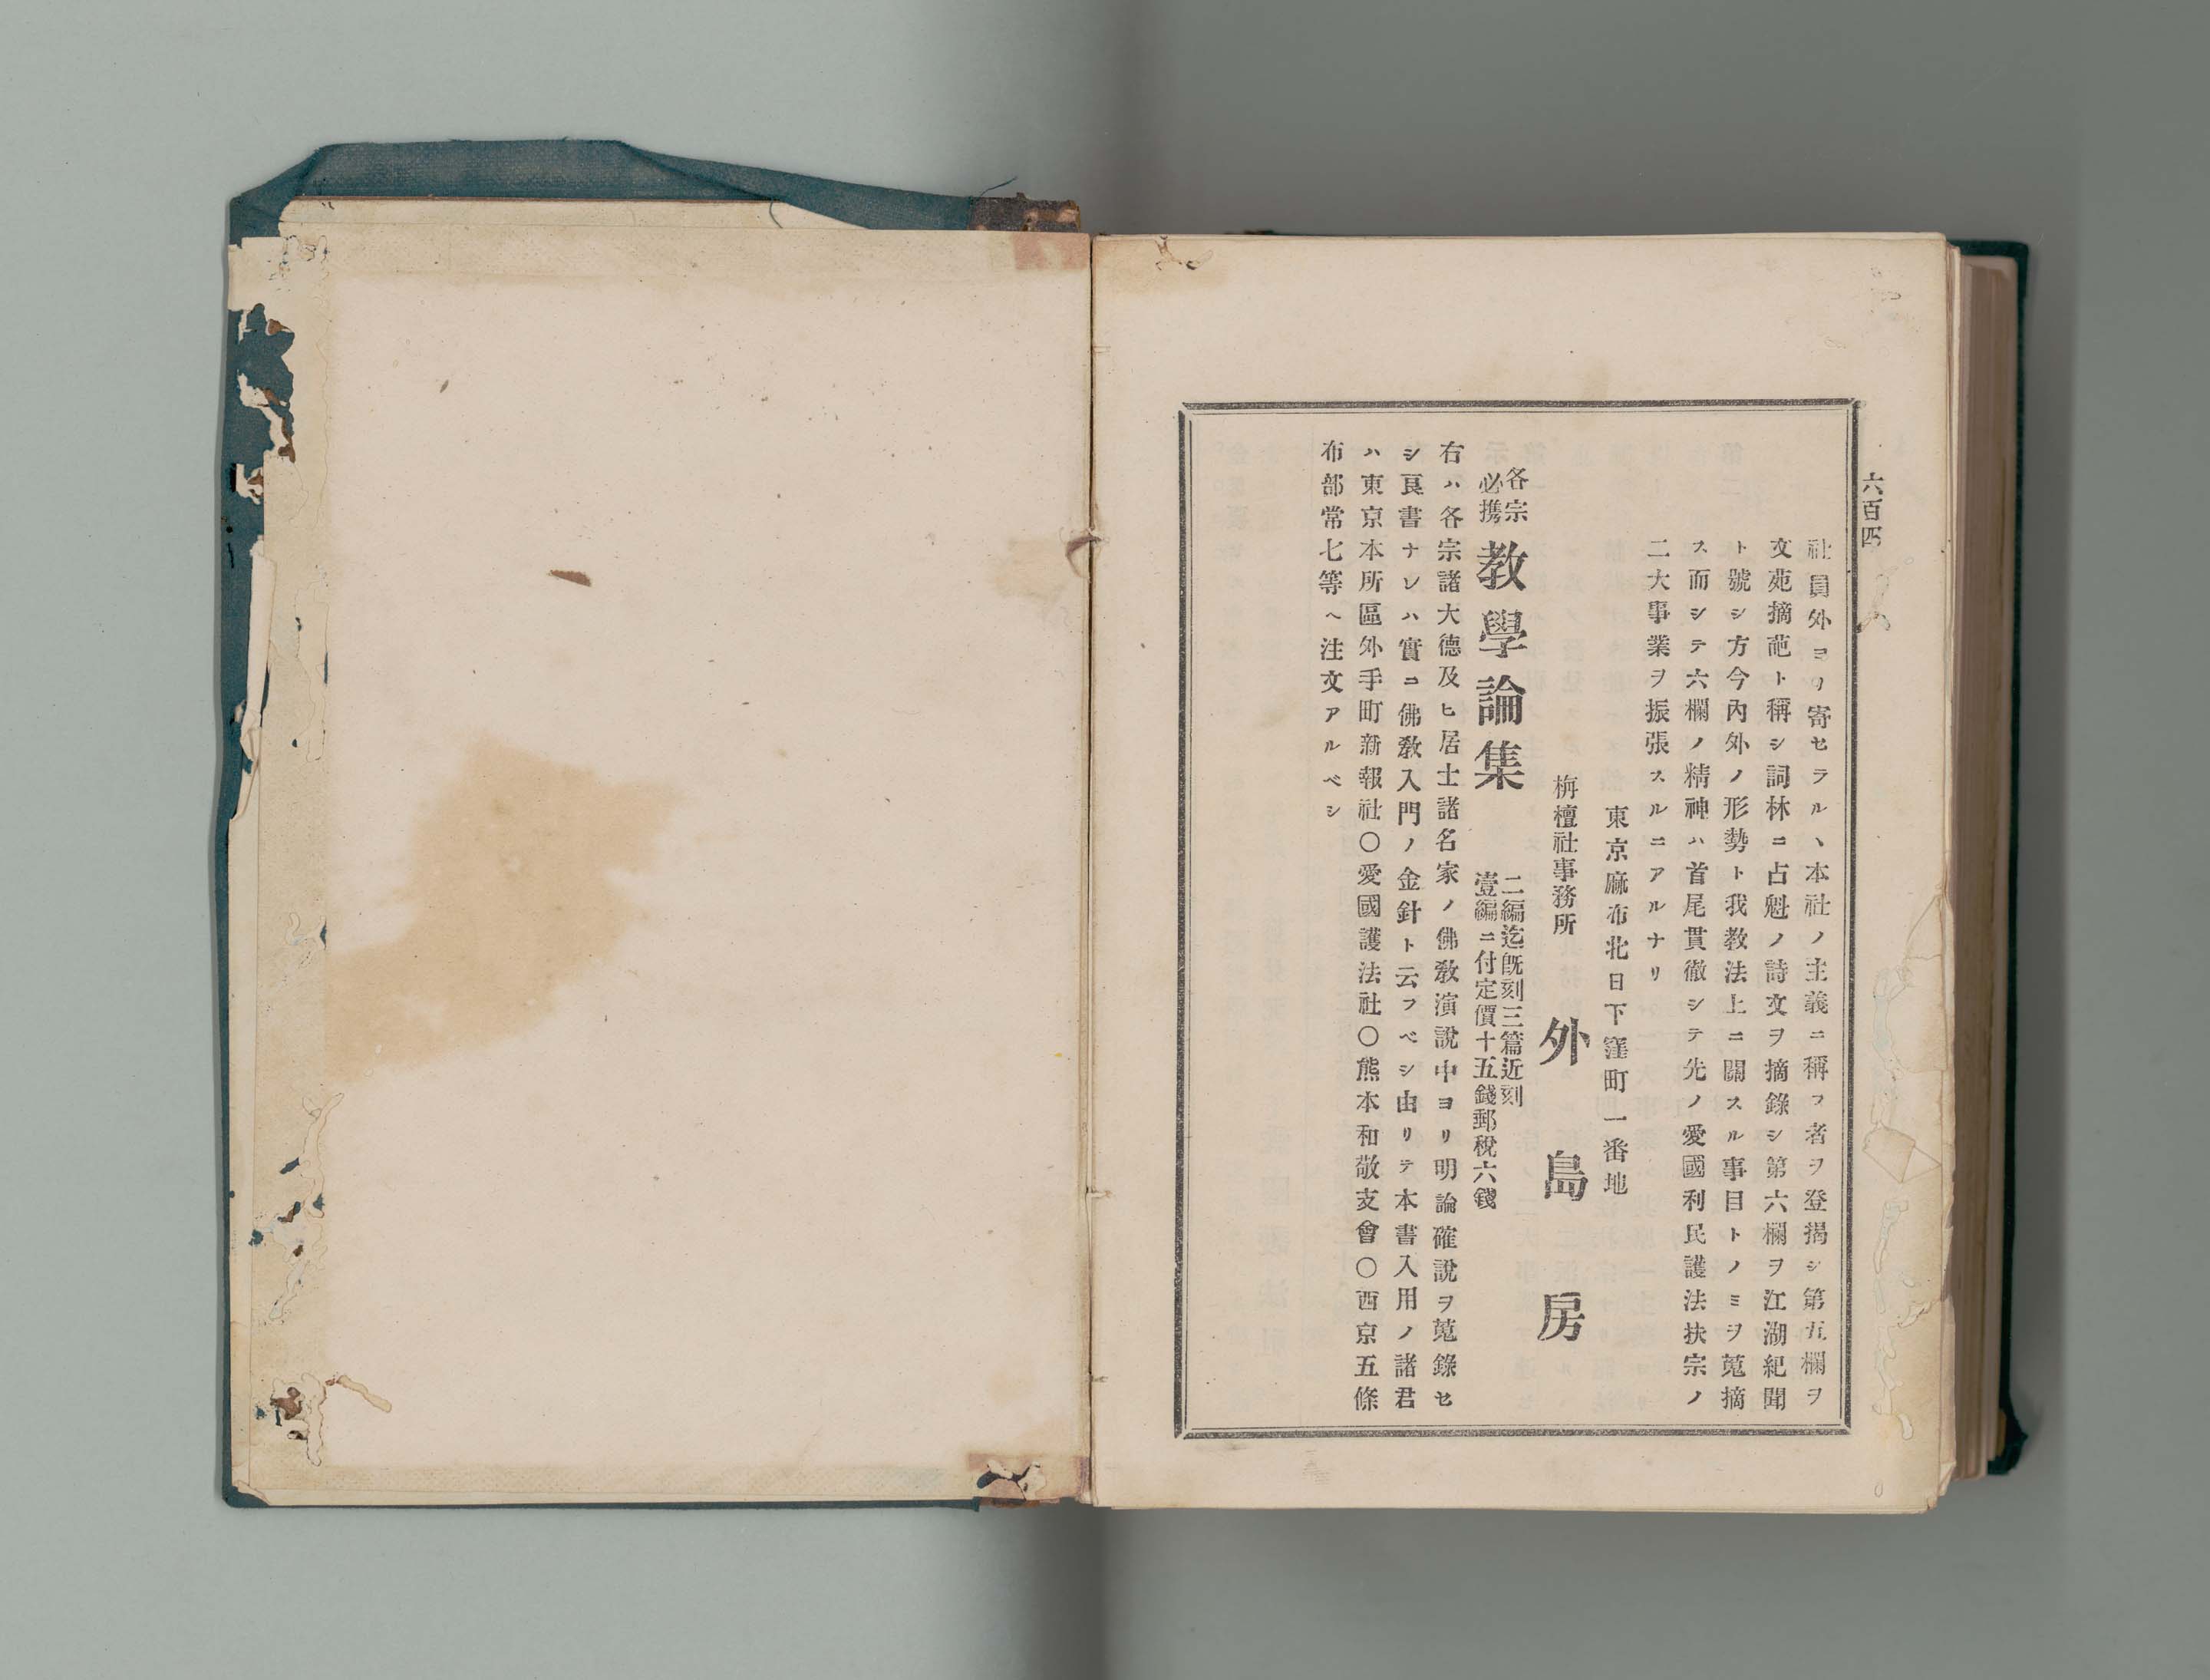 六百四
社員外ヨリ寄セラルヽ本社ノ主義ニ稱フ者ヲ登揭シ第五欄ヲ
文苑摘葩ト稱シ詞林ニ占魁ノ詩文ヲ摘錄シ第六欄ヲ江湖紀聞
ト號シ方今內外ノ形勢ト我敎法上ニ關スル事目トノミヲ蒐摘
ス而シテ六欄ノ精神ハ首尾貫徹シテ先ノ愛國利民護法扶宗ノ
二大事業ヲ振張スルニアルナリ
東京麻布北日下窪町一番地
栴檀社事務所 外島房
各宗
必携
教學論集
二編迄既刻三篇近刻
壹編ニ付定價十五錢郵稅六錢
右ハ各宗諸大德及ヒ居士諸名家ノ佛敎演說中ヨリ明論確說ヲ蒐錄セ
シ良書ナレハ實ニ佛敎入門ノ金針ト云フベシ由リテ本書入用ノ諸君
ハ東京本所區外手町新報社〇愛國護法社〇熊本和敬支會〇西京五條
布部常七等ヘ注文アルベシ